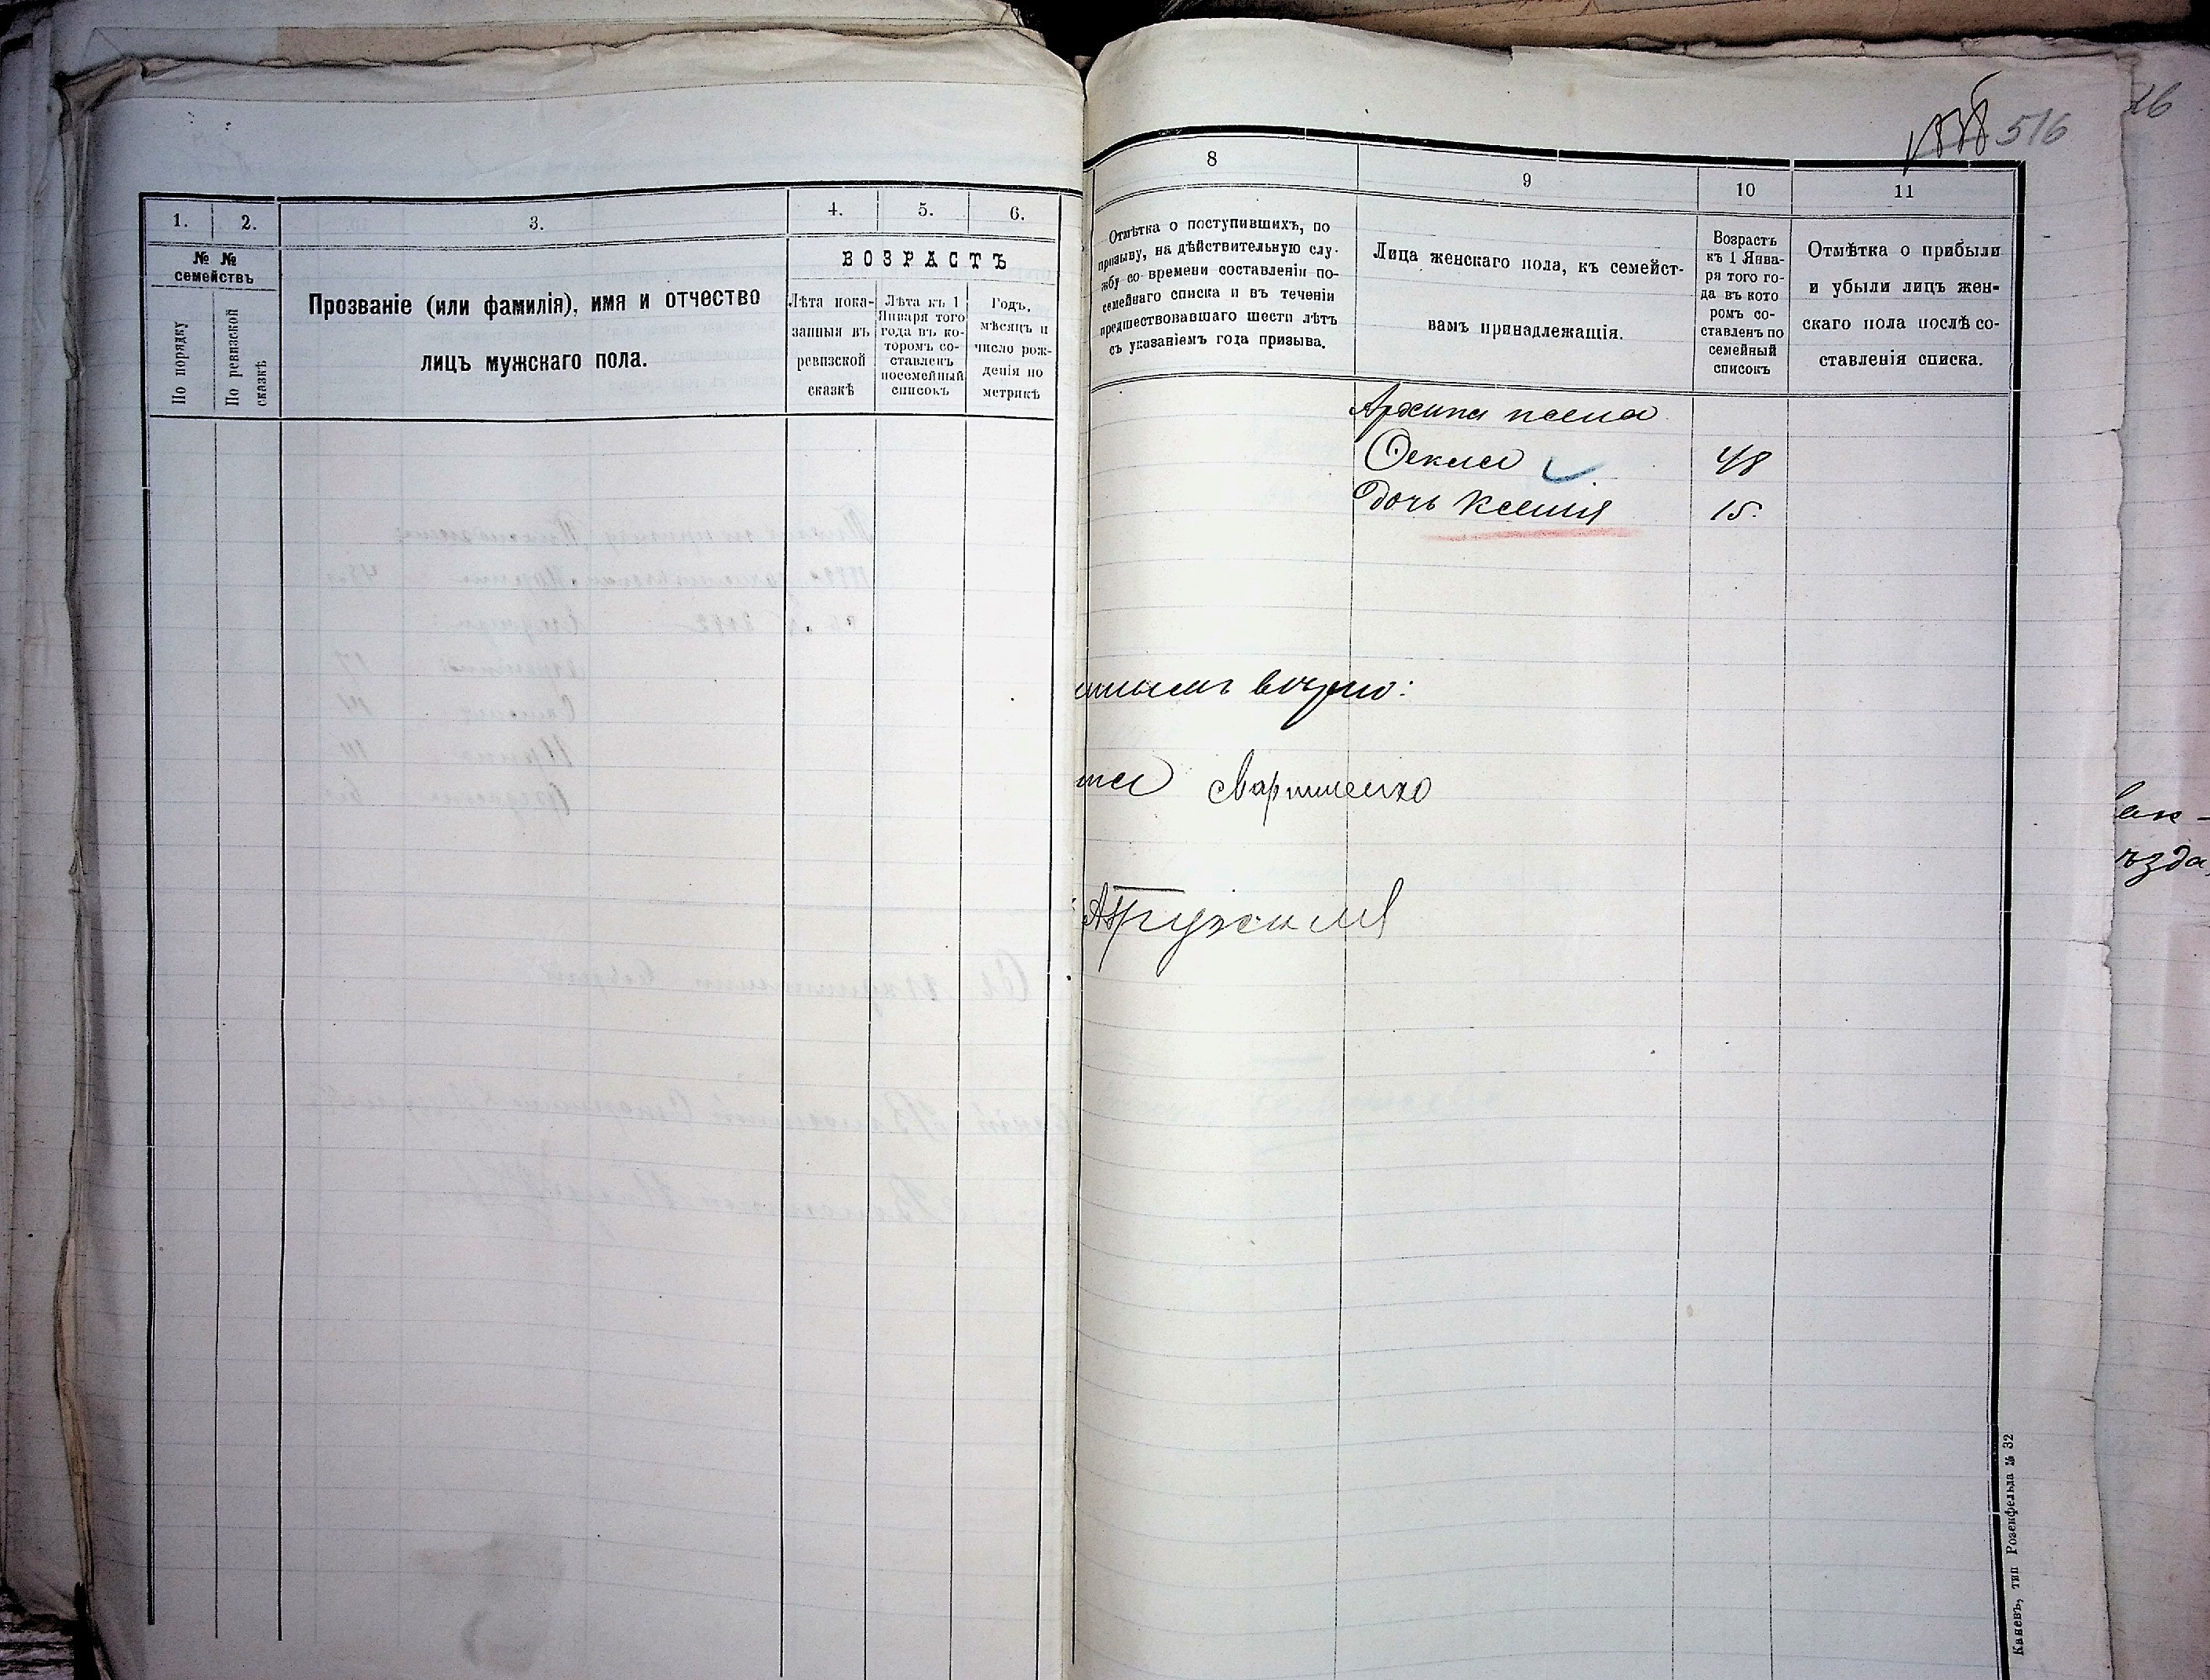 516
1. 2. 3. 4. 5. 6.
№ № семействъ
По порядку
По ревизской сказкѣ
Прозваніе (или фамилія), имя и отчество
лицъ мужскаго пола.
ВОЗРАСТЪ
Лѣта пока-
занныя въ
ревизской
сказкѣ
Лѣта къ 1
Января того
года въ ко-
торомъ со-
ставленъ
посемейный
списокъ
Годъ,
мѣсяцъ и
число рож-
денія по
метрикѣ
8 9 10 11
Отмѣтка о поступившихъ, по
призыву, на дѣйствительную слу-
жбу со времени составленіи по-
семейнаго списка и въ теченіи
предшествовавшаго шести лѣтъ
съ указаніемъ года призыва.
Лица женскаго пола, къ семейст-
вамъ принадлежащія.
Возрастъ
къ 1 Янва-
ря того го-
да въ кото
ромъ со-
ставленъ по
семейный
списокъ
Отмѣтка о прибыли
и убыли лицъ жен-
скаго пола послѣ со-
ставленія списка.
Архипа жена
Фекла 48
дочь Ксенія 15
вѣрно:
Каневъ, тип Розенфельда № 32